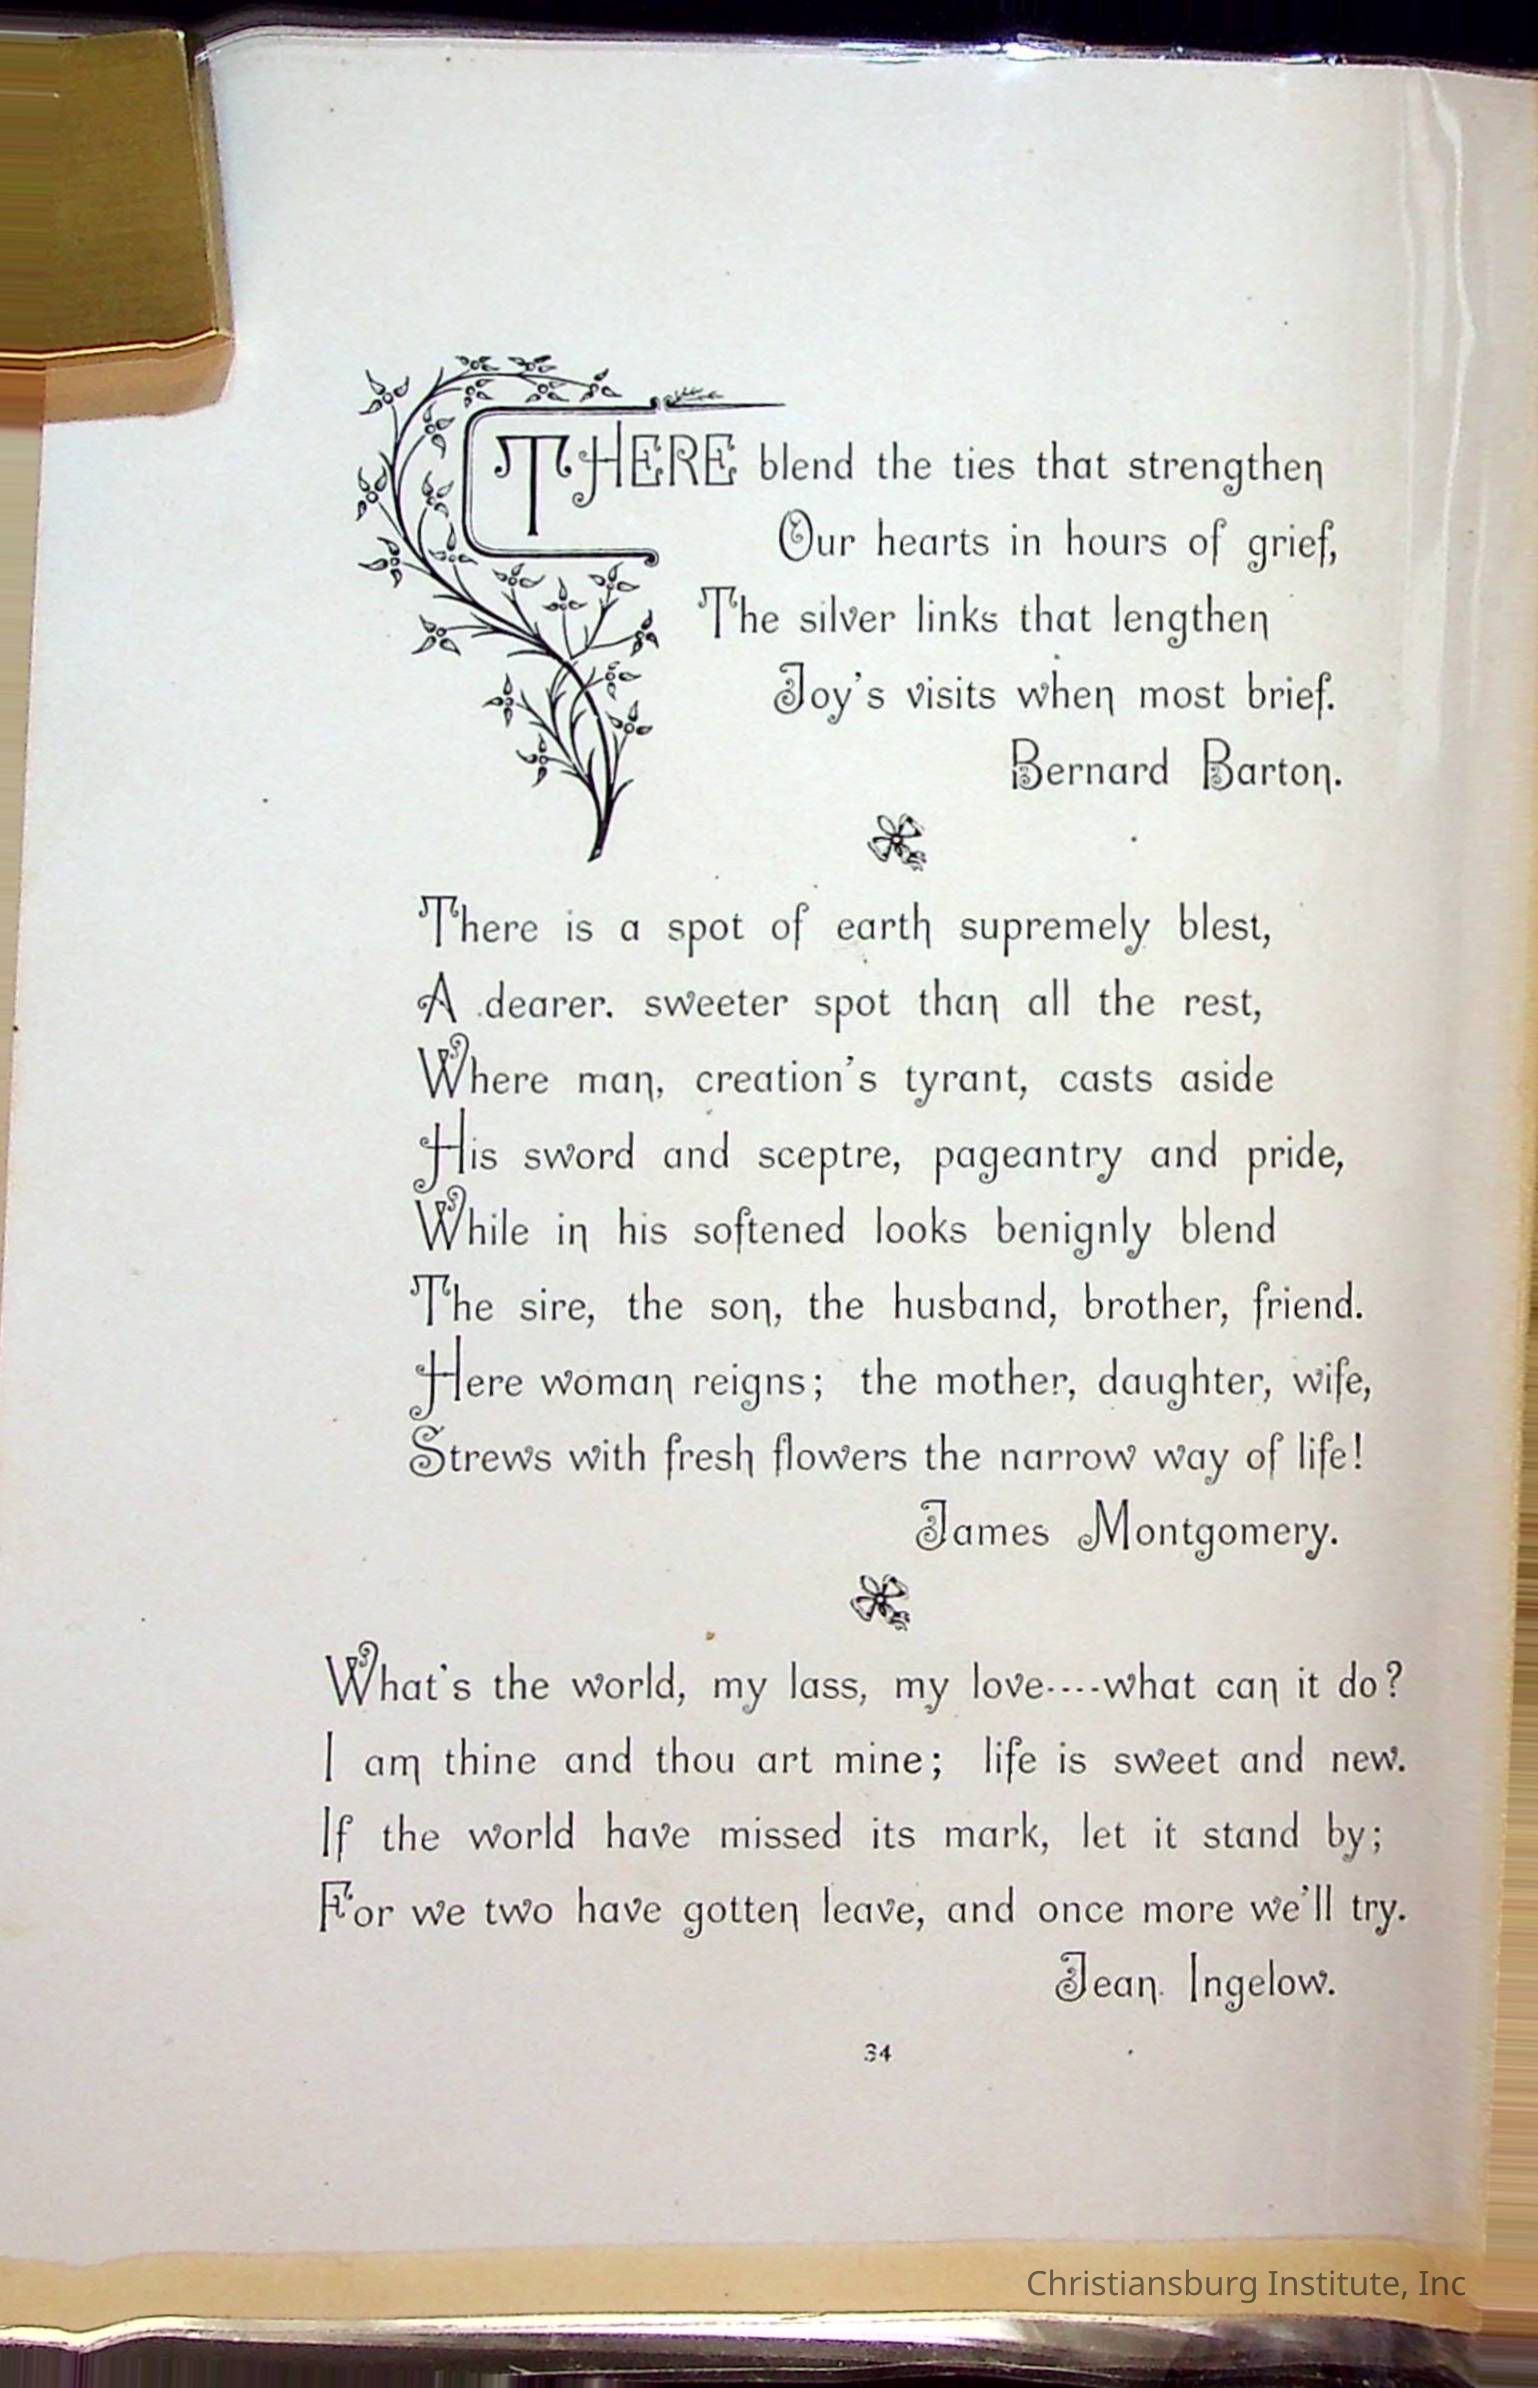 THERE blend the ties that strengthen
Our hearts in hours of grief,
The silver links that lengthen
Joy's visits when most brief.
Bernard Barton.
There is a spot of earth supremely blest,
A dearer. sweeter spot than all the rest,
Where man, creation's tyrant, casts aside
His sword and sceptre, pageantry and pride,
While in his softened looks benignly blend
The sire, the son, the husband, brother, friend.
Here woman reigns; the mother, daughter, wife,
Strews with fresh flowers the narrow way of life!
James Montgomery.
What's the world, my lass, my love----what can it do?
I am thine and thou art mine; life is sweet and new.
If the world have missed its mark, let it stand by;
For we two have gotten leave, and once more we'll try.
Jean Ingelow.
34
Christiansburg Institute, Inc